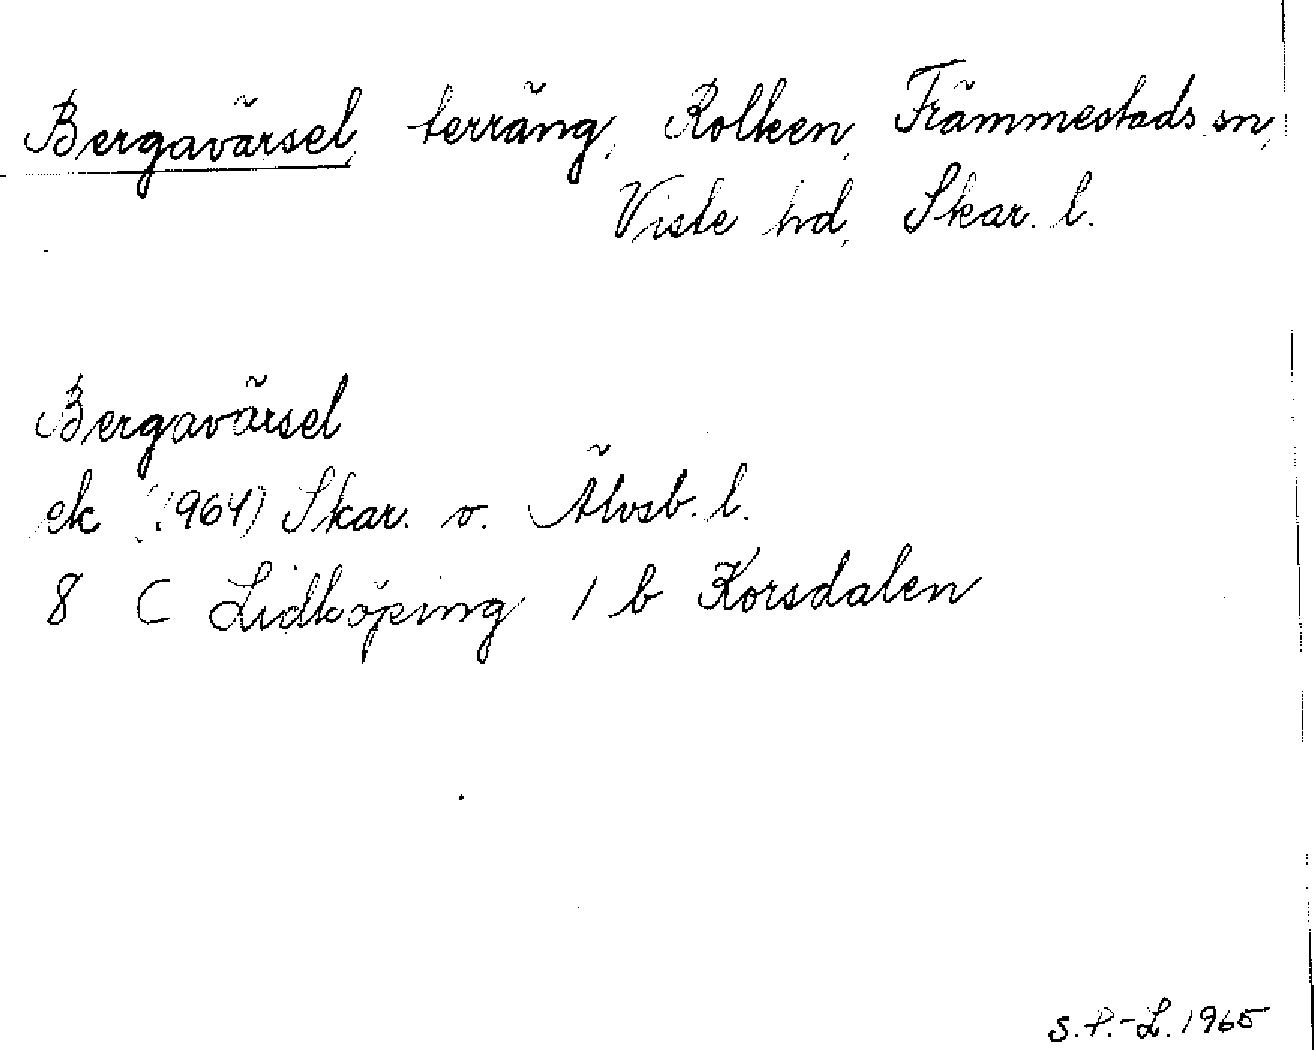 Bergavärsel, terräng, Rolken, Främmestads sn,
Viste hd, Skar. l.
Bergavärsel
ek (1964) Skar. o. Älvsb. l.
8 C Lidköping 1 b Korsdalen
S.P.-L. 1965